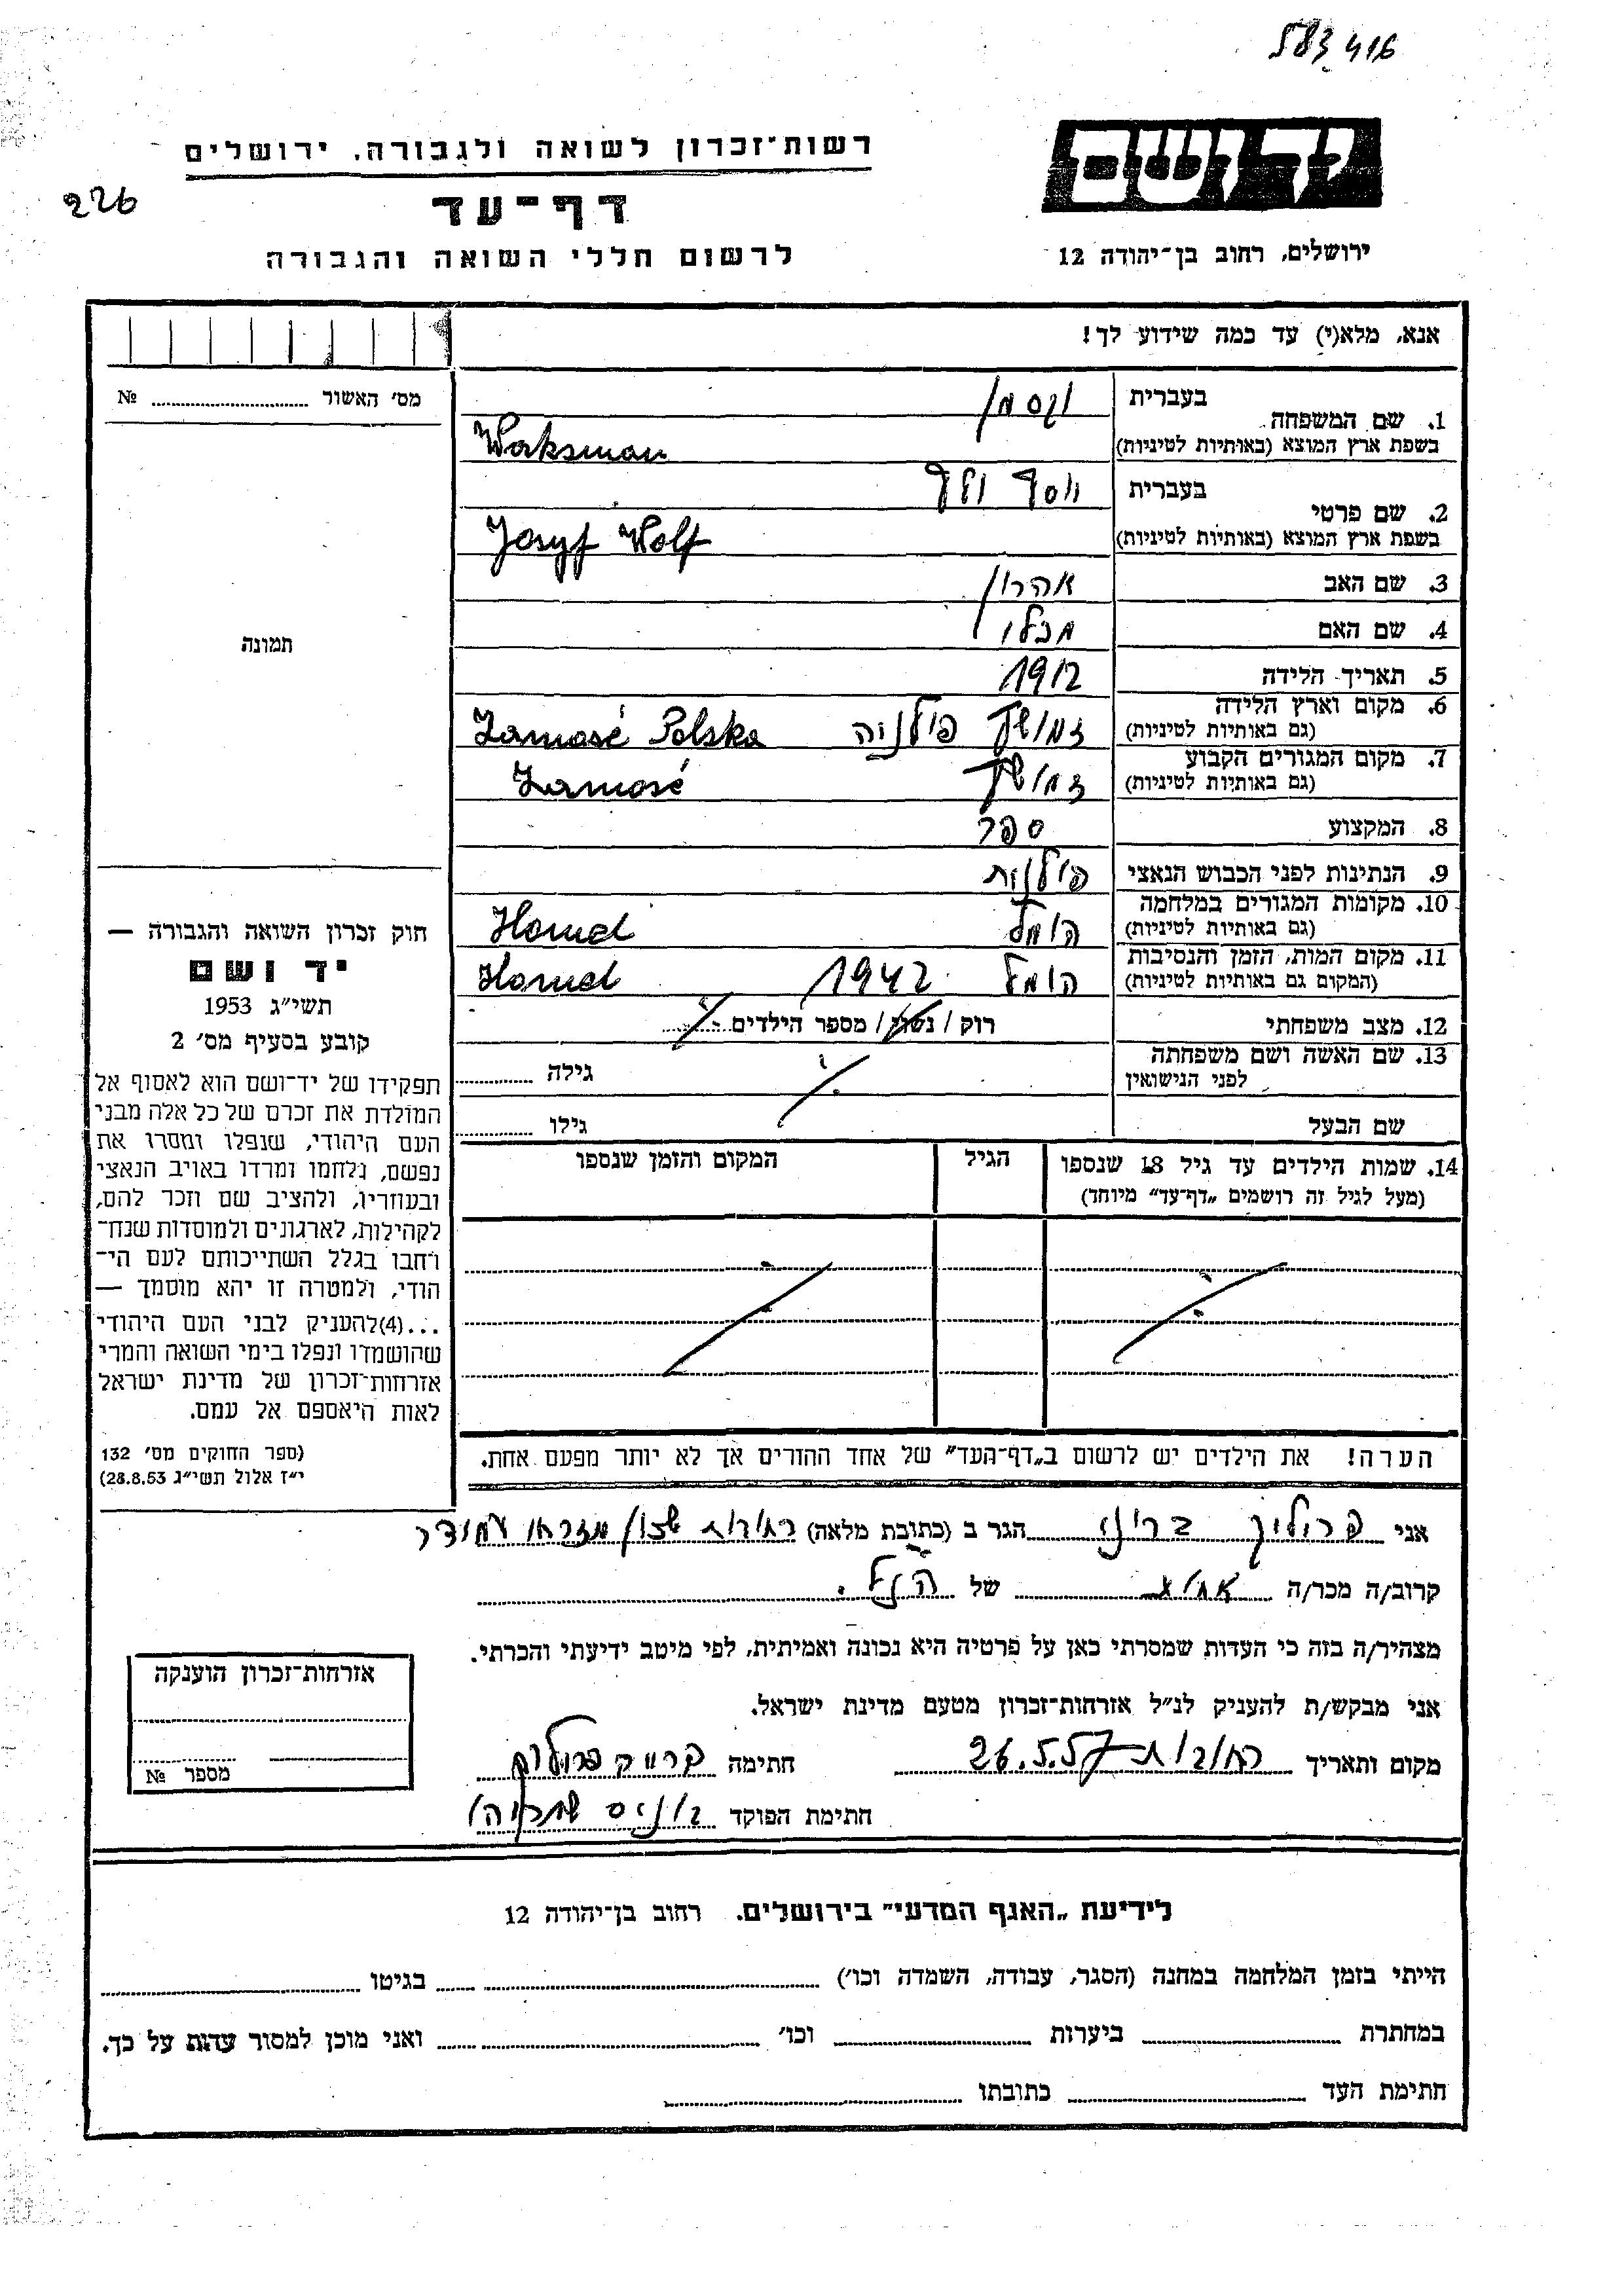 583416
יד ושם
רשות־זכרון לשואה ולגבורה, ירושלים
226
דף־עד
ירושלים, רחוב בן־יהודה 12
לרשום חללי השואה והגבורה
אנא, מלא(י) עד כמה שידוע לך!
מס׳ האשור № 
1. שם המשפחה בעברית וקסמן
בשפת ארץ המוצא (באותיות לטיניות) Waksman
2. שם פרטי בעברית יוסף וולף
בשפת ארץ המוצא (באותיות לטיניות) Josyf Wolf
3. שם האב אהרון
4. שם האם
5. תאריך הלידה 1912
6. מקום וארץ הלידה (גם באותיות לטיניות) פולניה Zamość Polska
7. מקום המגורים הקבוע (גם באותיות לטיניות) Zamość
8. המקצוע ספר
9. הנתינות לפני הכבוש הנאצי פולנית
10. מקומות המגורים במלחמה (גם באותיות לטיניות) הומל Homel
11. מקום המות, הזמן והנסיבות (המקום גם באותיות לטיניות) הומל 1942 Homel
12. מצב משפחתי רוק / נשוי / מספר הילדים
13. שם האשה ושם משפחתה לפני הנישואין גילה
שם הבעל גילו
14. שמות הילדים עד גיל 18 שנספו (מעל לגיל זה רושמים „דף־עד״ מיוחד) הגיל המקום והזמן שנספו
תמונה
חוק זכרון השואה והגבורה —
יד ושם
תשי״ג 1953
קובע בסעיף מס׳ 2
תפקידו של יד־ושם הוא לאסוף אל
המולדת את זכרם של כל אלה מבני
העם היהודי, שנפלו ומסרו את
נפשם, נלחמו ומרדו באויב הנאצי
ובעוזריו, ולהציב שם וזכר להם,
לקהילות, לארגונים ולמוסדות שנח־
רחבו בגלל השתייכותם לעם הי־
הודי, ולמטרה זו יהא מוסמך —
...(4)להעניק לבני העם היהודי
שהושמדו ונפלו בימי השואה והמרי
אזרחות־זכרון של מדינת ישראל
לאות היאספם אל עמם.
(ספר החוקים מס׳ 132
י״ז אלול תשי״ג 28.8.53)
הערה! את הילדים יש לרשום ב„דף־העד״ של אחד ההורים אך לא יותר מפעם אחת.
אני הגר ב (כתובת מלאה) רחובות
קרוב/ה מכר/ה של הנ״ל.
מצהיר/ה בזה כי העדות שמסרתי כאן על פרטיה היא נכונה ואמיתית, לפי מיטב ידיעתי והכרתי.
אני מבקש/ת להעניק לנ״ל אזרחות־זכרון מטעם מדינת ישראל.
מקום ותאריך רחובות 26.5.57 חתימה
חתימת הפוקד
אזרחות־זכרון הוענקה
מספר №
לידיעת „האגף המדעי״ בירושלים. רחוב בן־יהודה 12
הייתי בזמן המלחמה במחנה (הסגר, עבודה, השמדה וכו׳) בגיטו
במחתרת ביערות וכו׳ ואני מוכן למסור עדות על כך.
חתימת העד כתובתו